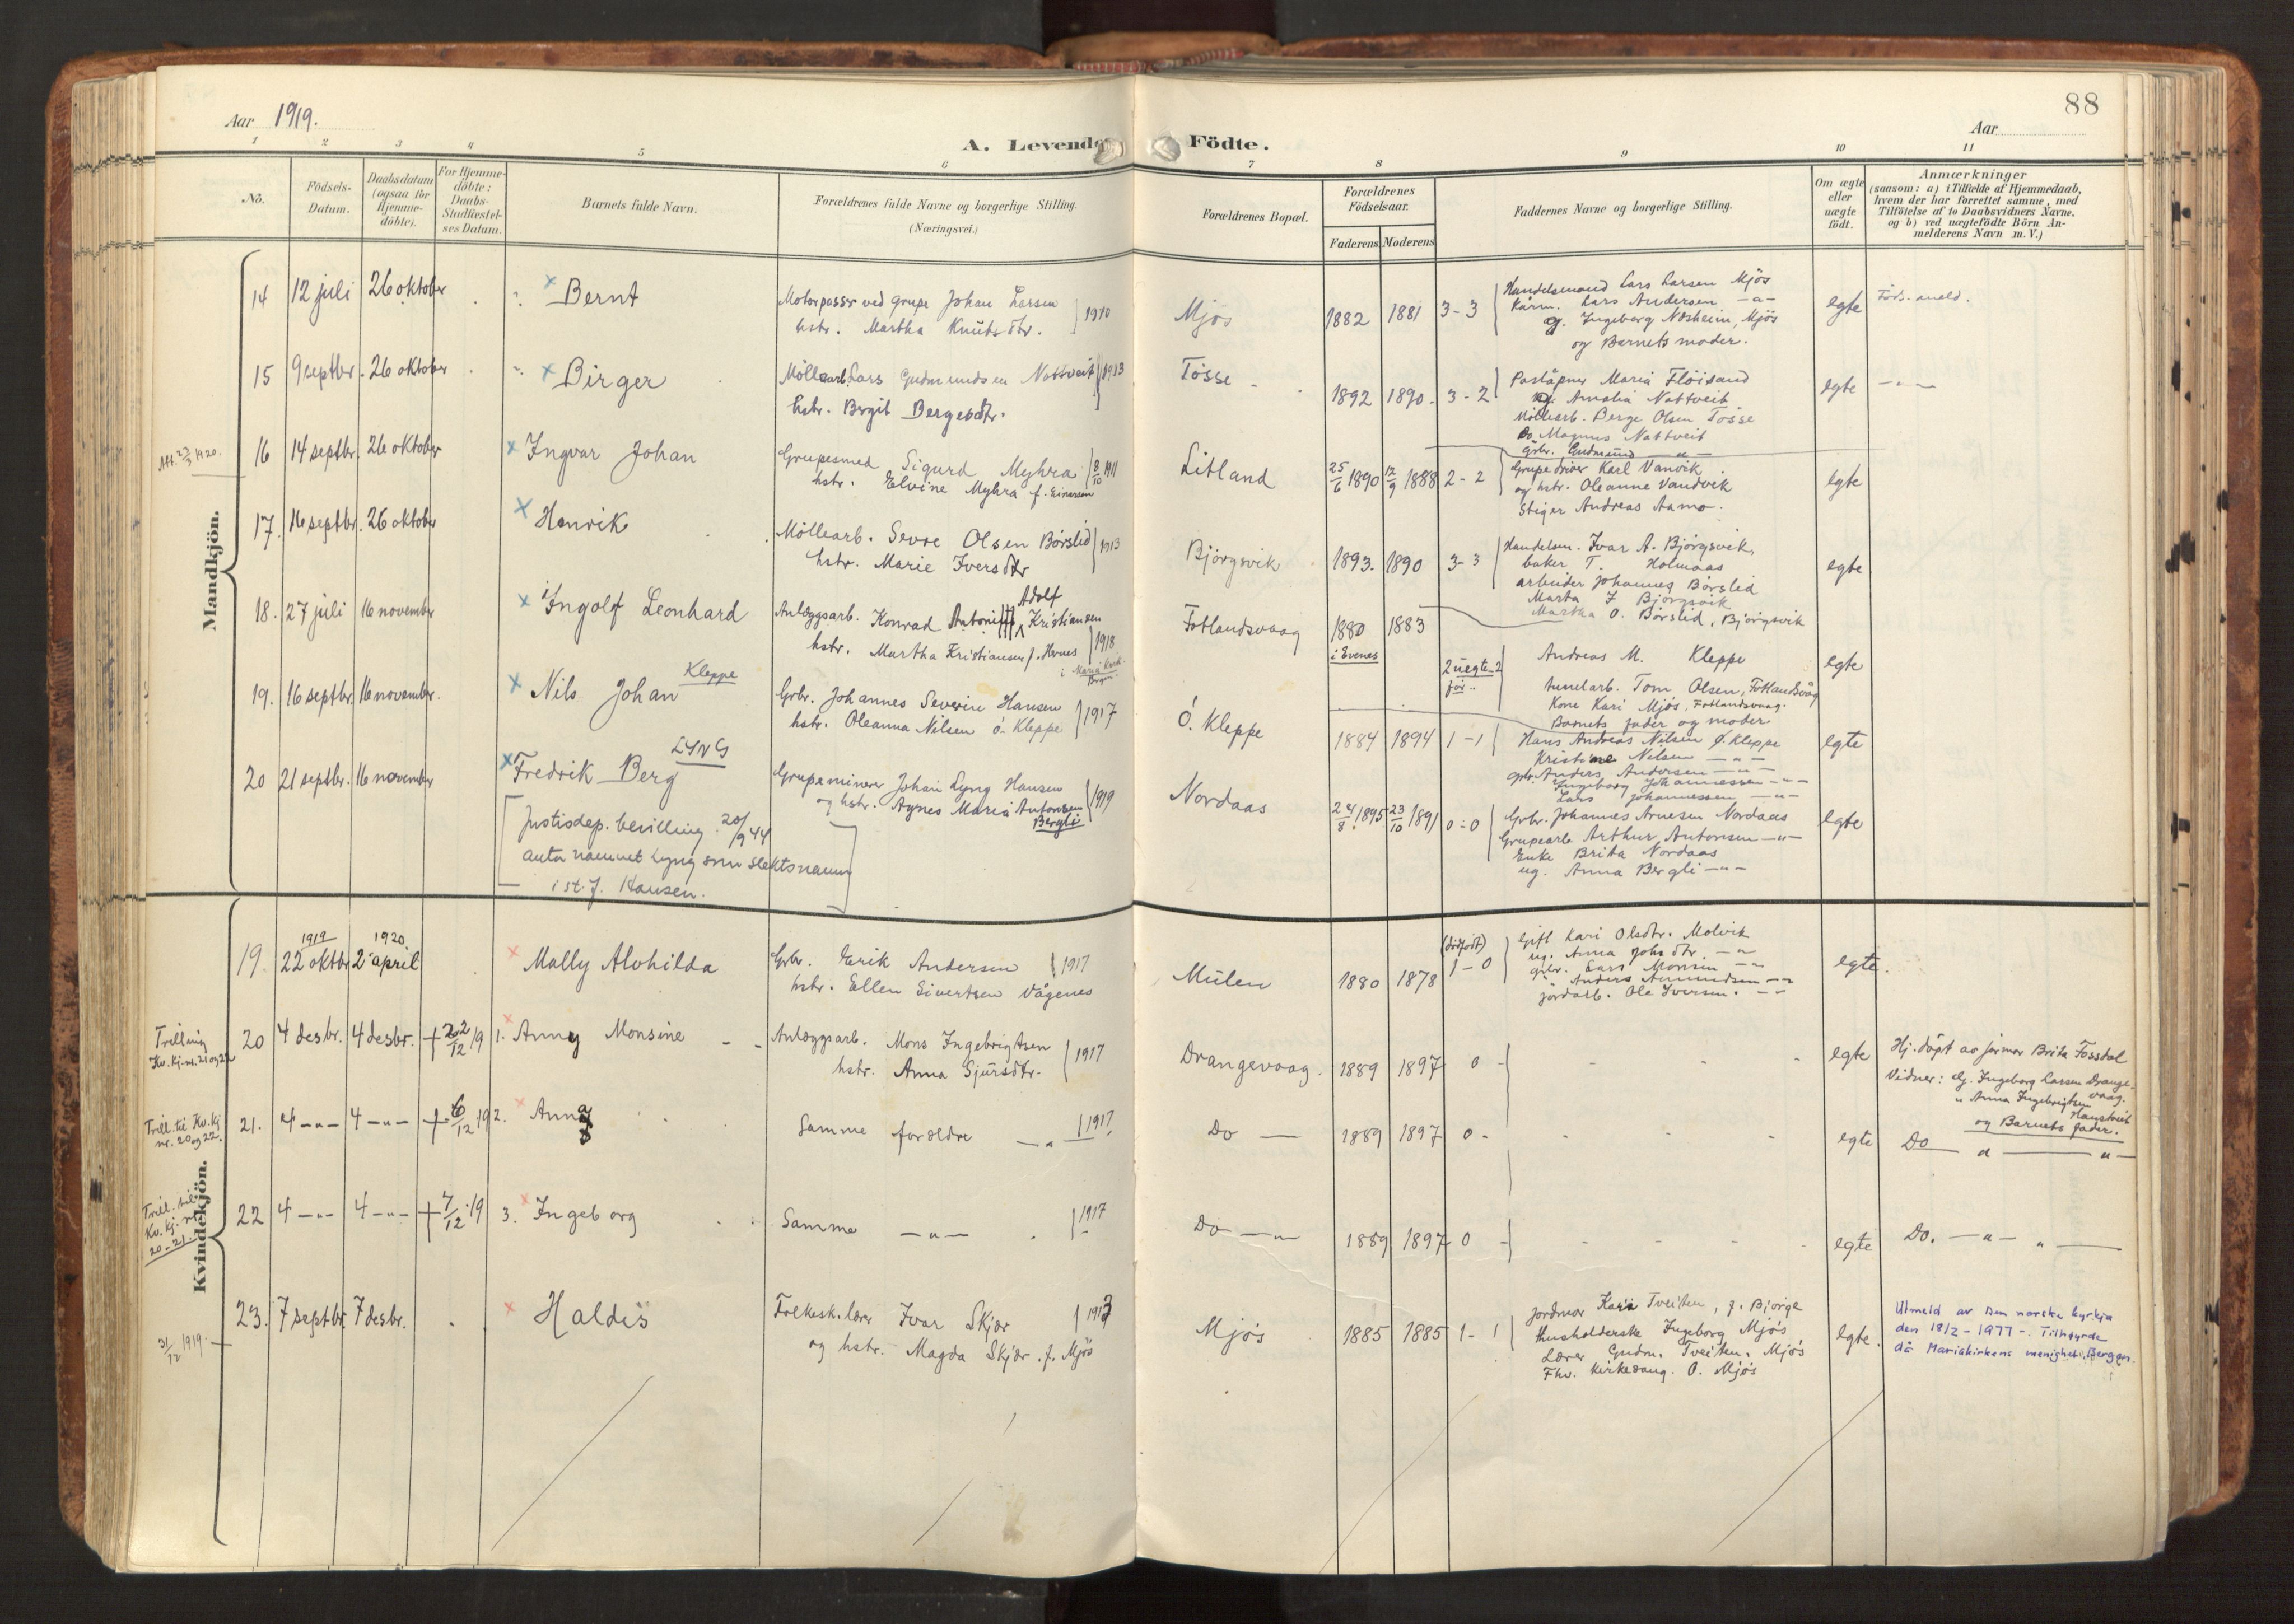 88
Aar 1919.
Aar
A. Levende Födte.
1 2 3 4 5 6 7 8 9 10 11
No.
Födsels-
Datum.
Daabsdatum
(ogsaa for
Hjemme-
döbte).
For Hjemme-
döbte:
Daabs-
Stadfæstel-
ses Datum.
Barnets fulde Navn.
Forældrenes fulde Navne og borgerlige Stilling.
(Næringsvei.)
Forældrenes Bopæl.
Forældrenes
Födselsaar.
Faderens Moderens
Faddernes Navne og borgerlige Stilling.
Om ægte
eller
uægte
födt.
Anmærkninger
(saasom: a) i Tilfælde af Hjemmedaab,
hvem der har forrettet samme, med
Tilföielse af to Daabsvidners Navne,
og b) ved uægtefödte Börn An-
melderens Navn m.V.)
Mandkjön.
14 12 juli 26 oktober Bernt
Motorpasser ved grupe Johan Larsen
hstr. Martha Knutsdtr. 1910
Mjøs 1882 1881 3-3
Handelsmand Lars Larsen Mjøs
Kårm. Lars Andersen -"-
og. Ingeborg Næsheim, Mjøs
og Barnets moder.
egte Föds. aneld.
15 9 septbr. 26 oktober Birger
Möllearb. Lars Gudmundsen Nottveit 1913
hstr. Brgit Bergesdtr.
Tøsse 1892 1890. 3-2
Poståpner Maria Fløisand
ug. Amalia Nottveit
Möllearb. Berge Olsen Tøsse
Do. Magnus Nottveit
Grbr. Gudmund -"-
egte -"-
Att. 23/3 1920.
16 14 septbr. 26 oktober Ingvar Johan
Grupesmed Sigurd Myhra 8/10 1911
hstr. Elvine Myhra f. Einarsen
Litland 25/6 1890 12/9 1888 2-2
Grupedriver Karl Vanvik
og hstr. Oleanne Vandvik
Stiger Andreas Aamo.
egte
17. 16 septbr. 26 oktober Henrik
Möllearb. Sevre Olsen Børslid 1913
hstr. Marie Iversdtr
Bjørgsvik 1893. 1890 3-3
Handelsm. Ivar A. Bjørgsvik,
baker T. Holmaas
arbeider Johannes Børslid
Marta J Bjørgsvik
Martha O. Børslid, Bjørgsvik
egte
18. 27 juli 16 november Ingolf Leonhard
Adolf
Anlægsarb. Konrad Kristiansen
hstr. Martha Kristiansen f. Hernes 1918
i Maria kirk. Bergen
Fotlandsvaag 1880 1883
i Evenes
2 uegte-2
før..
Andreas M. Kleppe
tunelarb. Tom Olsen, Fotlandsvåg
Kone Kari Mjøs, Fotlandsvaag.
Barnets fader og moder.
egte
19. 16 septbr. 16 november. Nils Johan Kleppe
Grbr. Johannes Severin Hansen
hstr. Oleanna Nilsen ö. Kleppe 1917
Ö. Kleppe 1884 1894 1-1
Hans Andreas Nilsen Ø. Kleppe
Kristine Nilsen -"-
grbr. Anders Andersen -"-
Ingeborg Johannessen -"-
Lars Johannessen -"-
egte
LYNG
20 21 septbr. 16 november Fredrik Berg
Grupeminerer Johan Lyng Hansen
og hstr. Agnes Maria Antonsen 1919
Bergli
Nordaas 24/8 1895 23/10 1891 0-0
Grbr. Johannes Arnesen Nordaas
Grupearb Arthur Antonsen -"-
Enke Brita Nordaas
ug. Anna Bergli -"-
egte
[Justisdep. bevilling 20/9 44
anta namnet Lyng som slektsnamn
i st. f. Hansen.]
Kvindekjön.
19. 1919 22 oktbr 1920 2 april Mally Alvhilda
Grbr. Erik Andersen 1917
hstr. Ellen Sivertsen Vågenes
Mülen 1880 1878 (dødfødt) 1-0
Gift Kari Olsdtr. Molvik
ug. Anna Johsdtr. -"-
grbr. Lars Monsen -"-
" Anders Amundsen -"-
jordarb. Ole Iversen. -"-
egte.
Trilling
Kv.kj. nr. 21 og 22
20 4 desbr. 4 desbr. + 22/12 19 1. Anny Monsine
Anlægsarb. Mons Ingebrigtsen
hstr. Anna Sjursdtr. 1917
Drangevaag. 1889 1897 0 -
egte
Hj. döpt av jormor Brita Fossdal
Vidner: Ug. Ingeborg Larsen Drange-
vaag.
" Anna Ingebrigtsen
Haustveit
og Barnets fader.
Trill. til Kv.kj
nr. 20 og 22.
21. 4 -"- 4 -"- + 6/12 19 2. Anna
Samme forældre -"- 1917
Do 1889 1897 0 - egte Do -"- "
Trill. til
Kv. kj. nr.
20-21.
22 4 -"- 4 -"- + 7/12 19 3. Ingeborg
Samme -"- 1917
Do -"- 1889 1897 0 - egte Do. -"- "
31/12 1919
23. 7 septbr. 7 desbr. Haldis
Folkesk.lærer Ivar Skjær 1913
og hstr. Magda Skjær. f. Mjøs
Mjøs 1885 1885 1-1
Jordmor Kari Tveiten, f. Bjørge
Husholderske Ingeborg Mjøs
Lærer Gudm. Tveiten, Mjøs
Fhv. kirkesang. O. Mjøs
egte.
Utmeld av Den norske kyrkja
den 18/2-1977-. Tilhøyrde
då Mariakirkens menighet, Bergen.